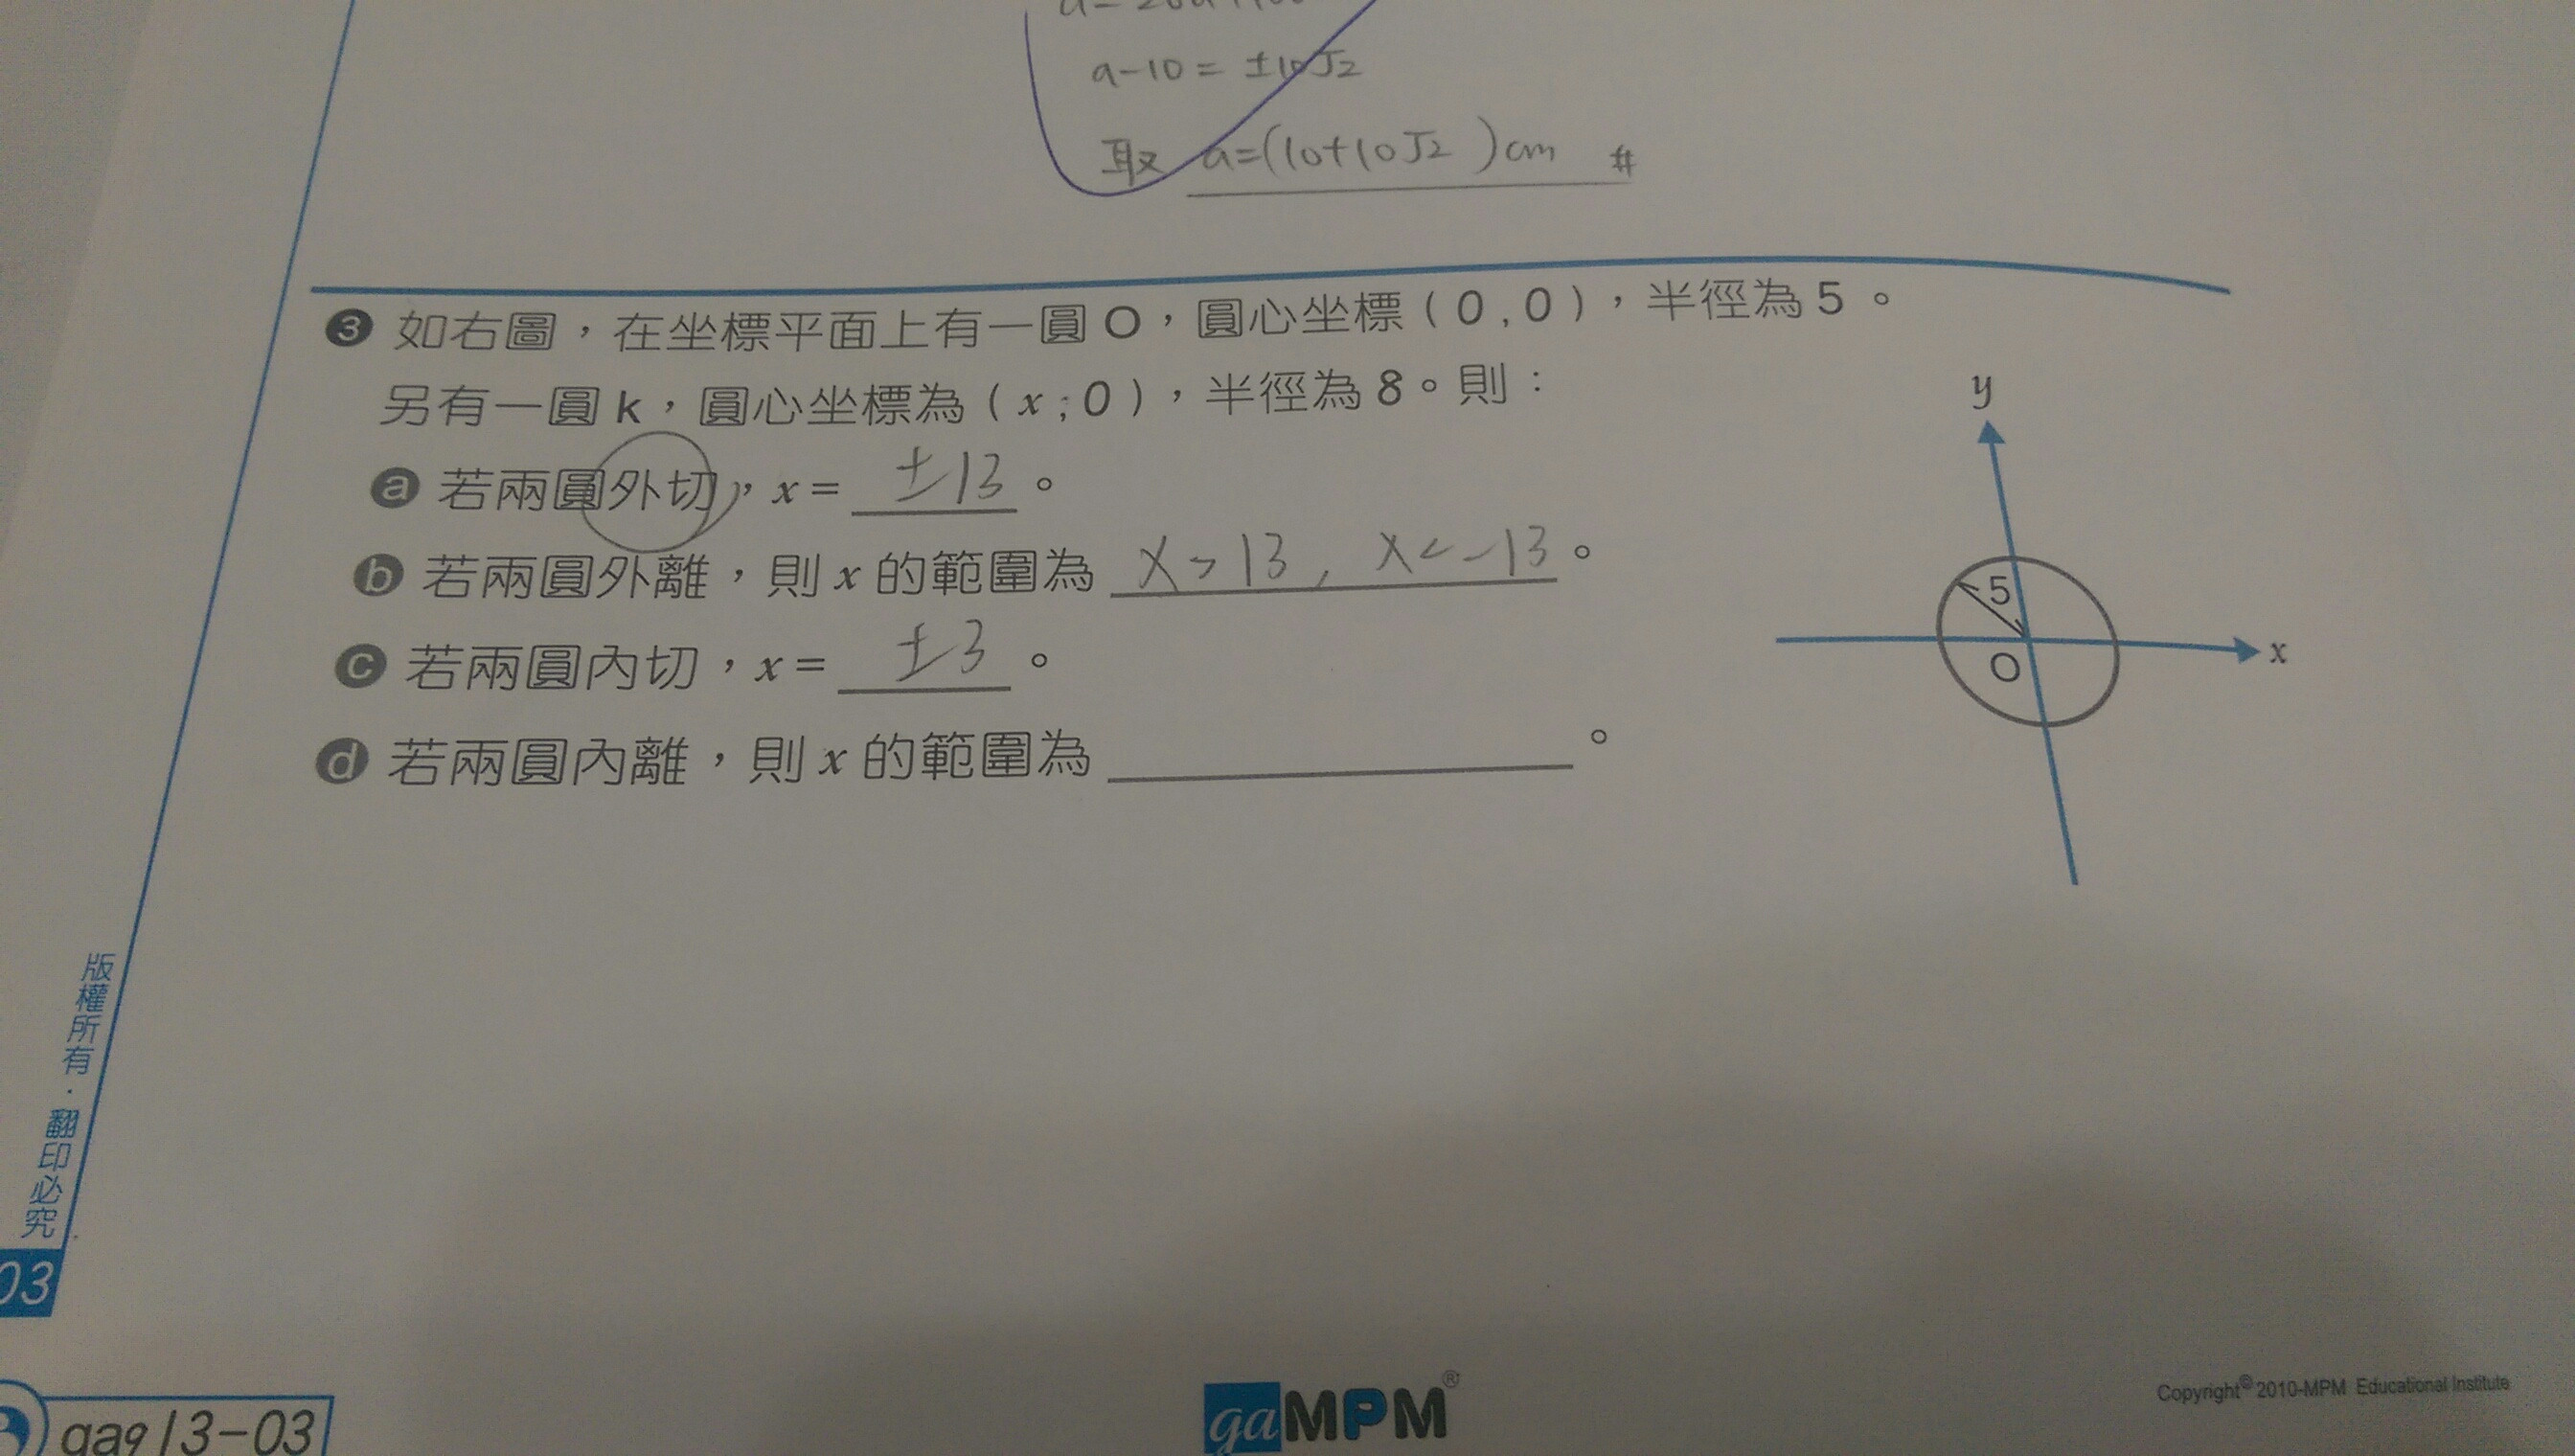 a-10 = ±10√2
取 a=(10+10√2)cm #
❸ 如右圖，在坐標平面上有一圓O，圓心坐標(0,0)，半徑為5。
另有一圓k，圓心坐標為(x,0)，半徑為8。則：
ⓐ 若兩圓外切，x= ±13。
ⓑ 若兩圓外離，則x的範圍為 x>13, x<-13。
ⓒ 若兩圓內切，x= ±3。
ⓓ 若兩圓內離，則x的範圍為 。
y
5
O
x
版權所有．翻印必究
03
ga913-03
gaMPM®
Copyright© 2010-MPM Educational Institute